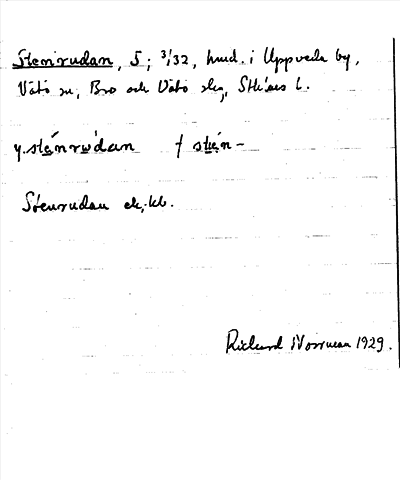 Stenrudan, 5; 3/32, hmd. i Uppveda by,
Vätö sn, Bro och Vätö skg, Sthlms l.
y. sténrùdan † stén-
Stenrudan ek. kb.
Rickard Norrman 1929.